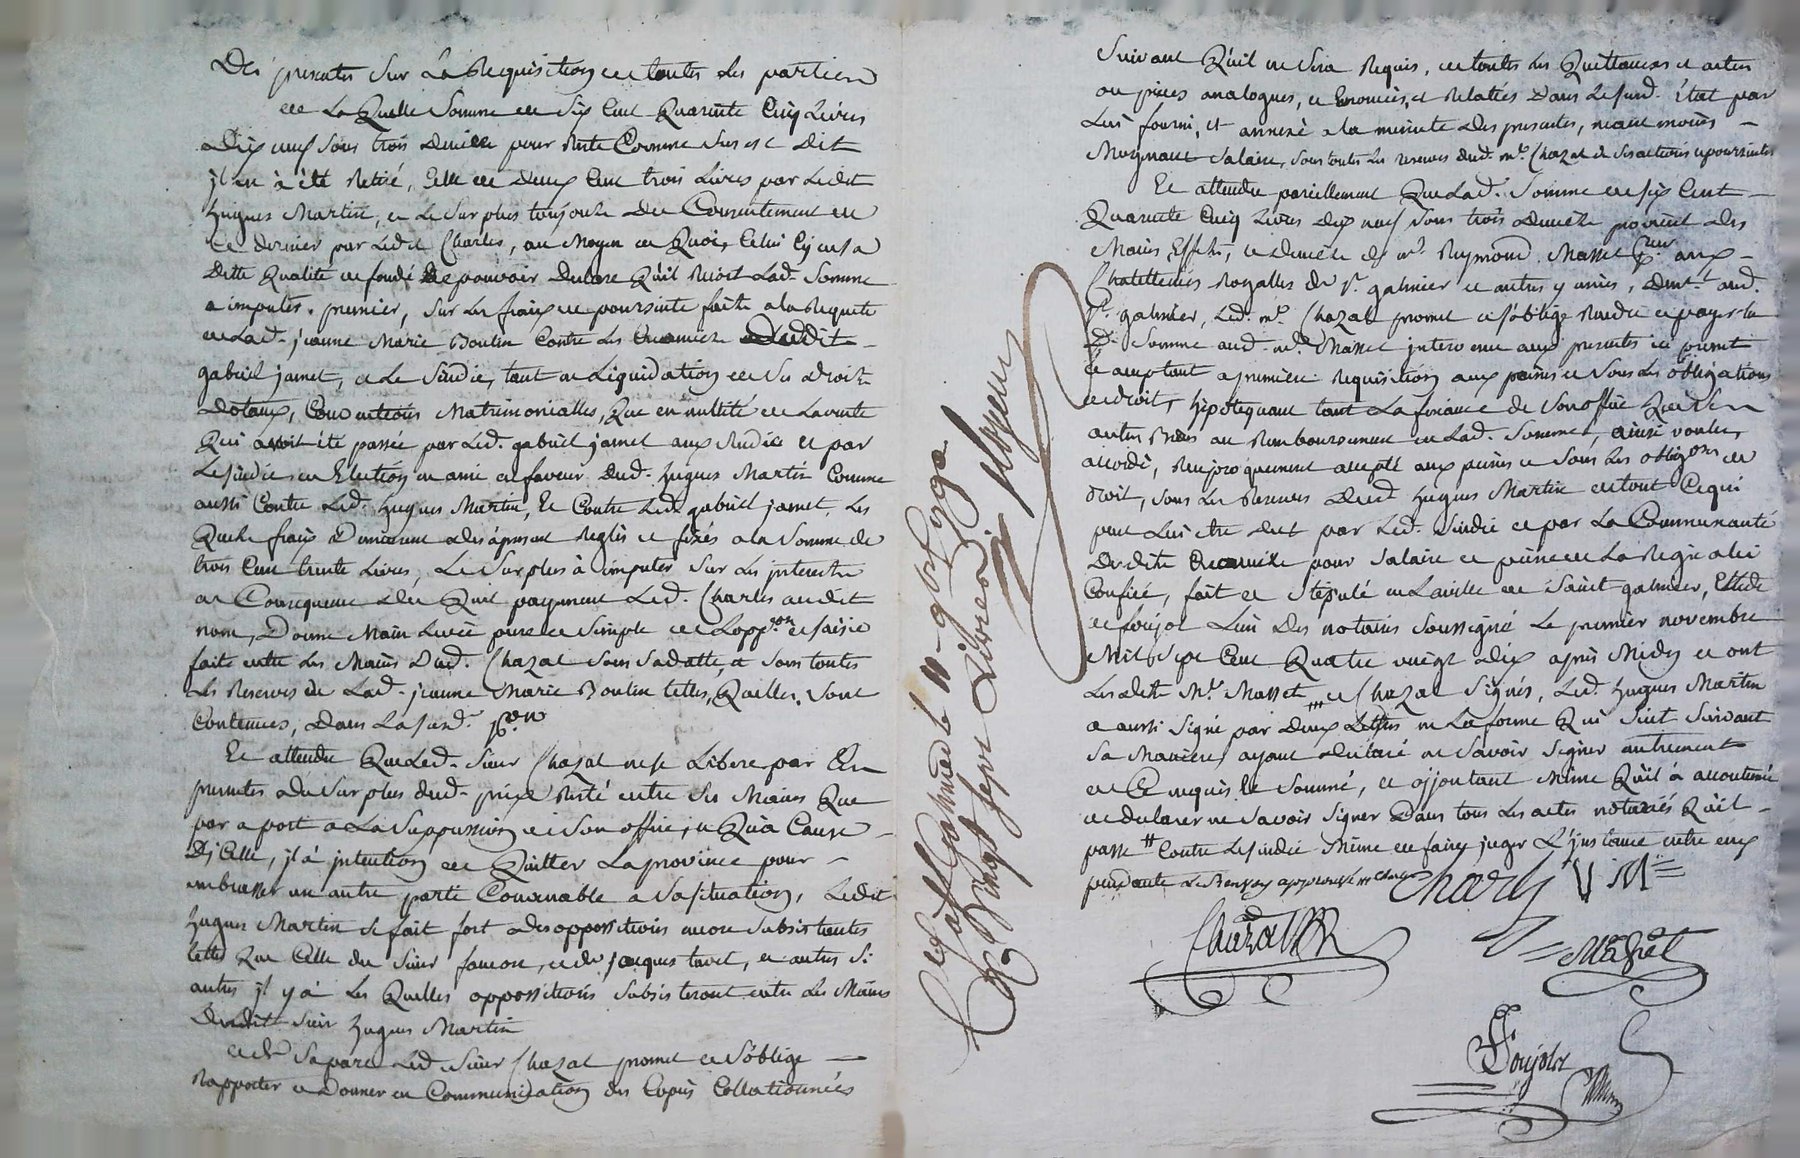 Des presentes sur La Requisition de toutes les parties
de La Quelle Somme de Six Cent Quarante Cinq Livres
Dix neuf sous trois deniers pour Reste Comme sus est Dit
il en à été Retiré, Celle de Deux Cent trois Livres par Ledit
hugues Martin, et Le Surplus toujours Du Consentement de
Ce dernier par Ledit Charles, au Moyen de Quoi, Celui Cy en sa
Ditte Qualité de fondé De pouvoir Declare Quil Reçoit Lad. Somme
a imputer. premier, Sur Les fraix de poursuite faite a la Requete
de Lad. jeanne Marie Boulin Contre Les Creanciers Dudit
gabriel jamet, et Le Sindic, tant en Liquidation de Ses droits
Dotaux, Conventions Matrimonialles, Que en nullité de La vente
Qui avoit été passée par Led. gabriel jamet aux Sindic et par
Le sindic en Election en ami en faveur dud. hugues Martin Comme
aussi Contre Led. hugues Martin, Et Contre Led. gabriel jamet, Les
Quels fraix Demeurent des àpresent Reglés et fixés a la Somme de
trois Cent trente Livres, Le Surplus à imputer Sur Les interets
en Consequence Du Quel payement Led. Charles audit
nom, Donne Main Levée pure et Simple de L'oppon. et saisie
faite entre Les Mains Dud. Chazal sous Sa datte, et Sous toutes
Les Reserves de Lad. jeanne Marie Boulin telles, Quelles, Sont
Contenues, Dans La susd. pon.
Et attendu Que Led. Sieur Chazal ne se Libere par Les
presentes du Surplus dud. prix Resté entre Ses Mains Que
par aport a La Suppression de Son office, et Qu'a Cause
D'jcelle, jl à jntention de Quitter La province pour
embrasser un autre parti Convenable a Sa situation, Ledit
hugues Martin Se fait fort des oppositions encore Subsistantes
telles Que Celle du Sieur faucon, et de jacques tavet, et autres Si
autres jl y à Les Quelles oppositions Subsisteront entre Les Mains
Dudit Sieur hugues Martin
et de Sa part Led. Sieur Chazal promet et S'oblige
Rapporter et Donner en Communication des Copies Collationnées
Controllé à St Galmier le 11 9bre 1790
Reçu Vingt sept Livres
Suivant Quil en Sera Requis, de toutes Les Quittances et actes
ou pieces analogues, et Enoncés, et Relatés Dans Le susd. Etat par
Lui fourni, et annexé a la minute Des presentes, neanmoins
Moyenant Salaire, sous toutes Les reserves dud. mr. Chazal de Ses actions et poursuites
Et attendu pareillement Que Lad. Somme de Six Cent
Quarante Cinq Livres Dix neuf Sous trois Deniers provient Des
Mains, Effets, et Deniers de mr. Reymond Masset Greff. aux
Chatellenies Royalles de St. galmier et autres y unies, Demt. aud.
St. galmier, Led. mr. Chazal promet et s'oblige Rendre et payer la
D. Somme aud. mr. Masset intervenu aux presentes ici present
et acceptant a premiere Requisition aux peines et Sous Les obligations
de droit, hipotequant tant La finance de Son office Que Ses
autres Biens au Remboursement de Lad. Somme, ainsi voulu,
accordé, Reciproquement accepté aux peines et Sous Les obligons de
droit, sous Les Reserves Dud. hugues Martin de tout Ce qui
peut Lui être Dut par Led. Sindic et par La Communauté
Desdits Creanciers pour Salaire et peine de La Regie a lui
Confiée, fait et Stipulé en La ville de Saint galmier, Etude
de foujols L'un Des notaires Soussigné Le premier novembre
Mil Sept Cent Quatre vingt Dix après Midy et ont
Lesdits Mr. Masset, et Chazal Signés, Led. hugues Martin
a aussi Signé par Deux Lettres en La forme Qui Suit Suivant
Sa Maniere, ayant declaré ne Savoir Signer autrement
de Ce enquis et Sommé, et ajoutant Même Quil à accoutumé
de declarer ne Savoir Signer Dans tous Les actes notariés Quil
passe Contre Le sindic Même en faire juger L'jnstance entre eux
pendante
Charles V M
Chazal
Masset
Foujols